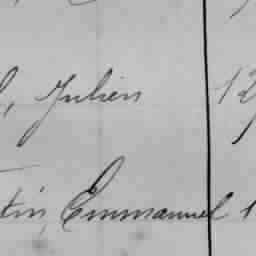 , Julien 12
tin, Emmanuel 1